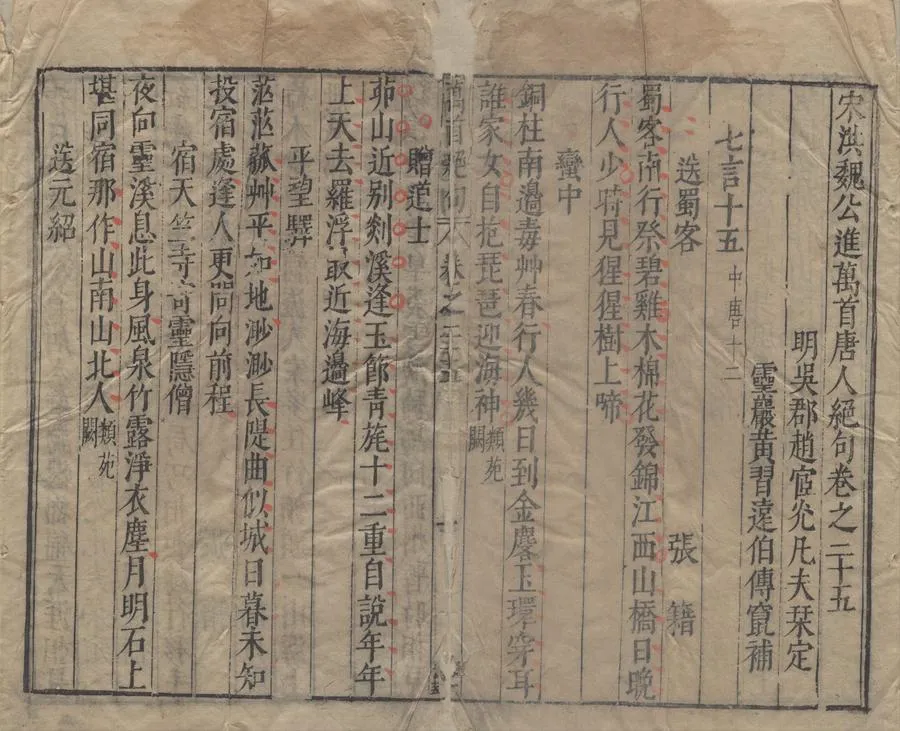 宋洪魏公進萬首唐人絕句卷之二十五
明吳郡趙宧光凡夫栞定
靈巖黃習遠伯傳竄補
七言十五 中唐十二
送蜀客 張籍
蜀客南行祭碧雞木棉花發錦江西山橋日晚
行人少時見猩猩樹上啼
蠻中
銅柱南邊毒艸春行人幾日到金麐玉環穿耳
誰家女自抱琵琶迎海神 類苑闕
萬首絕句 卷之二十五 一
贈道士
茆山近別剡溪逢玉節靑旄十二重自說年年
上天去羅浮最近海邊峰
平望驛
茫茫菰艸平如地渺渺長隄曲似城日暮未知
投宿處逢人更問向前程
宿天竺寺寄靈隱僧
夜向靈溪息此身風泉竹露淨衣塵月明石上
堪同宿那作山南山北人 類苑闕
送元紹